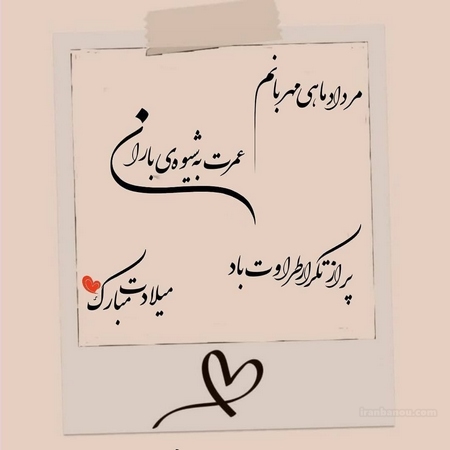 مردادماهی مهربانم
عمرت به شیوه‌ی باران
پر از تکرار طراوت باد
میلادت مبارک